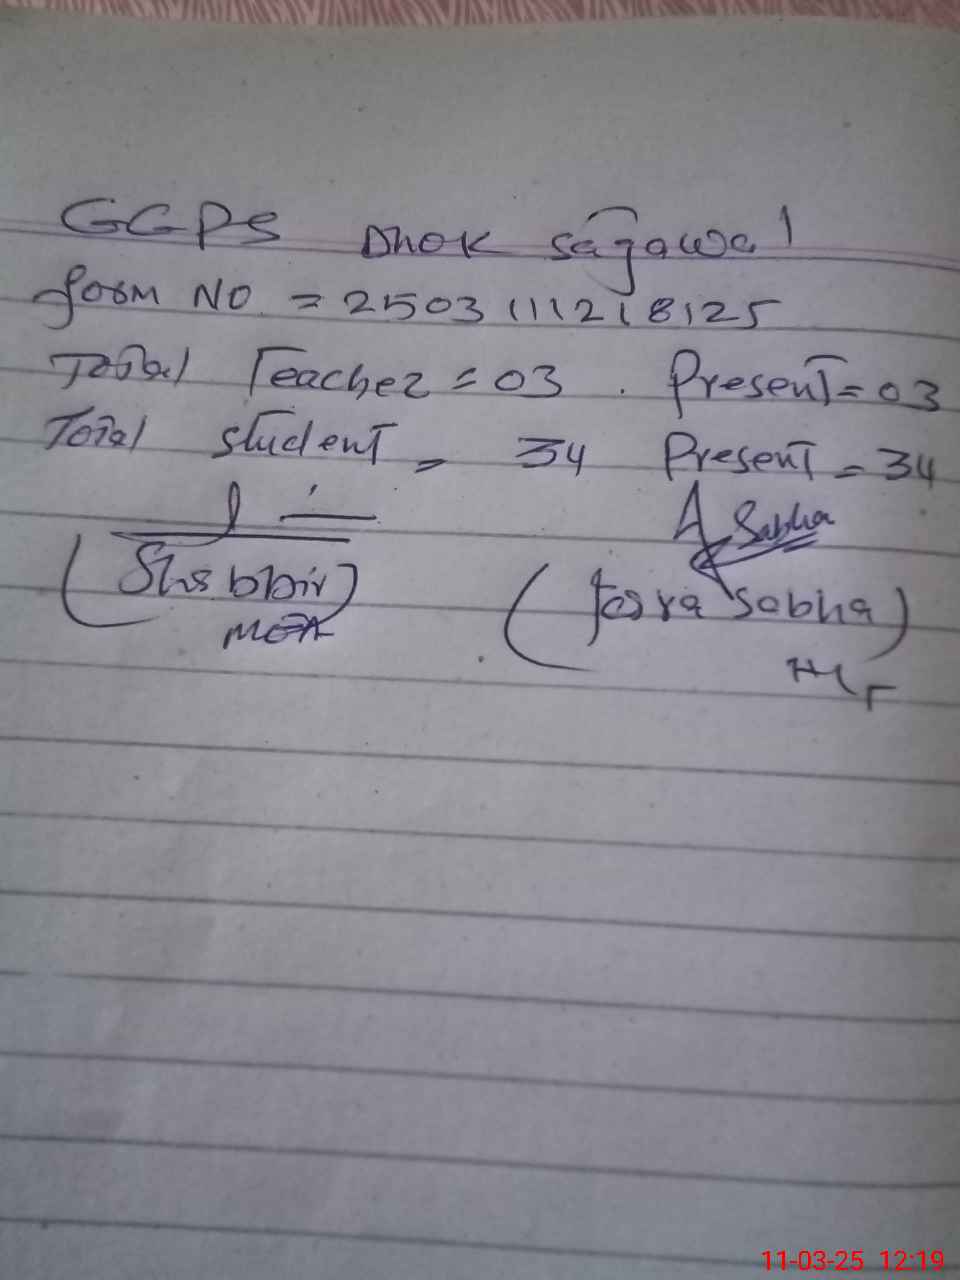 GGPS Dhok sagawal
form NO = 2503111218125
Total Teacher = 03 . Present = 03
Total student = 34 Present = 34
Sabha
(Shabbir) (Josra Sabha)
MEA
11-03-25 12:19